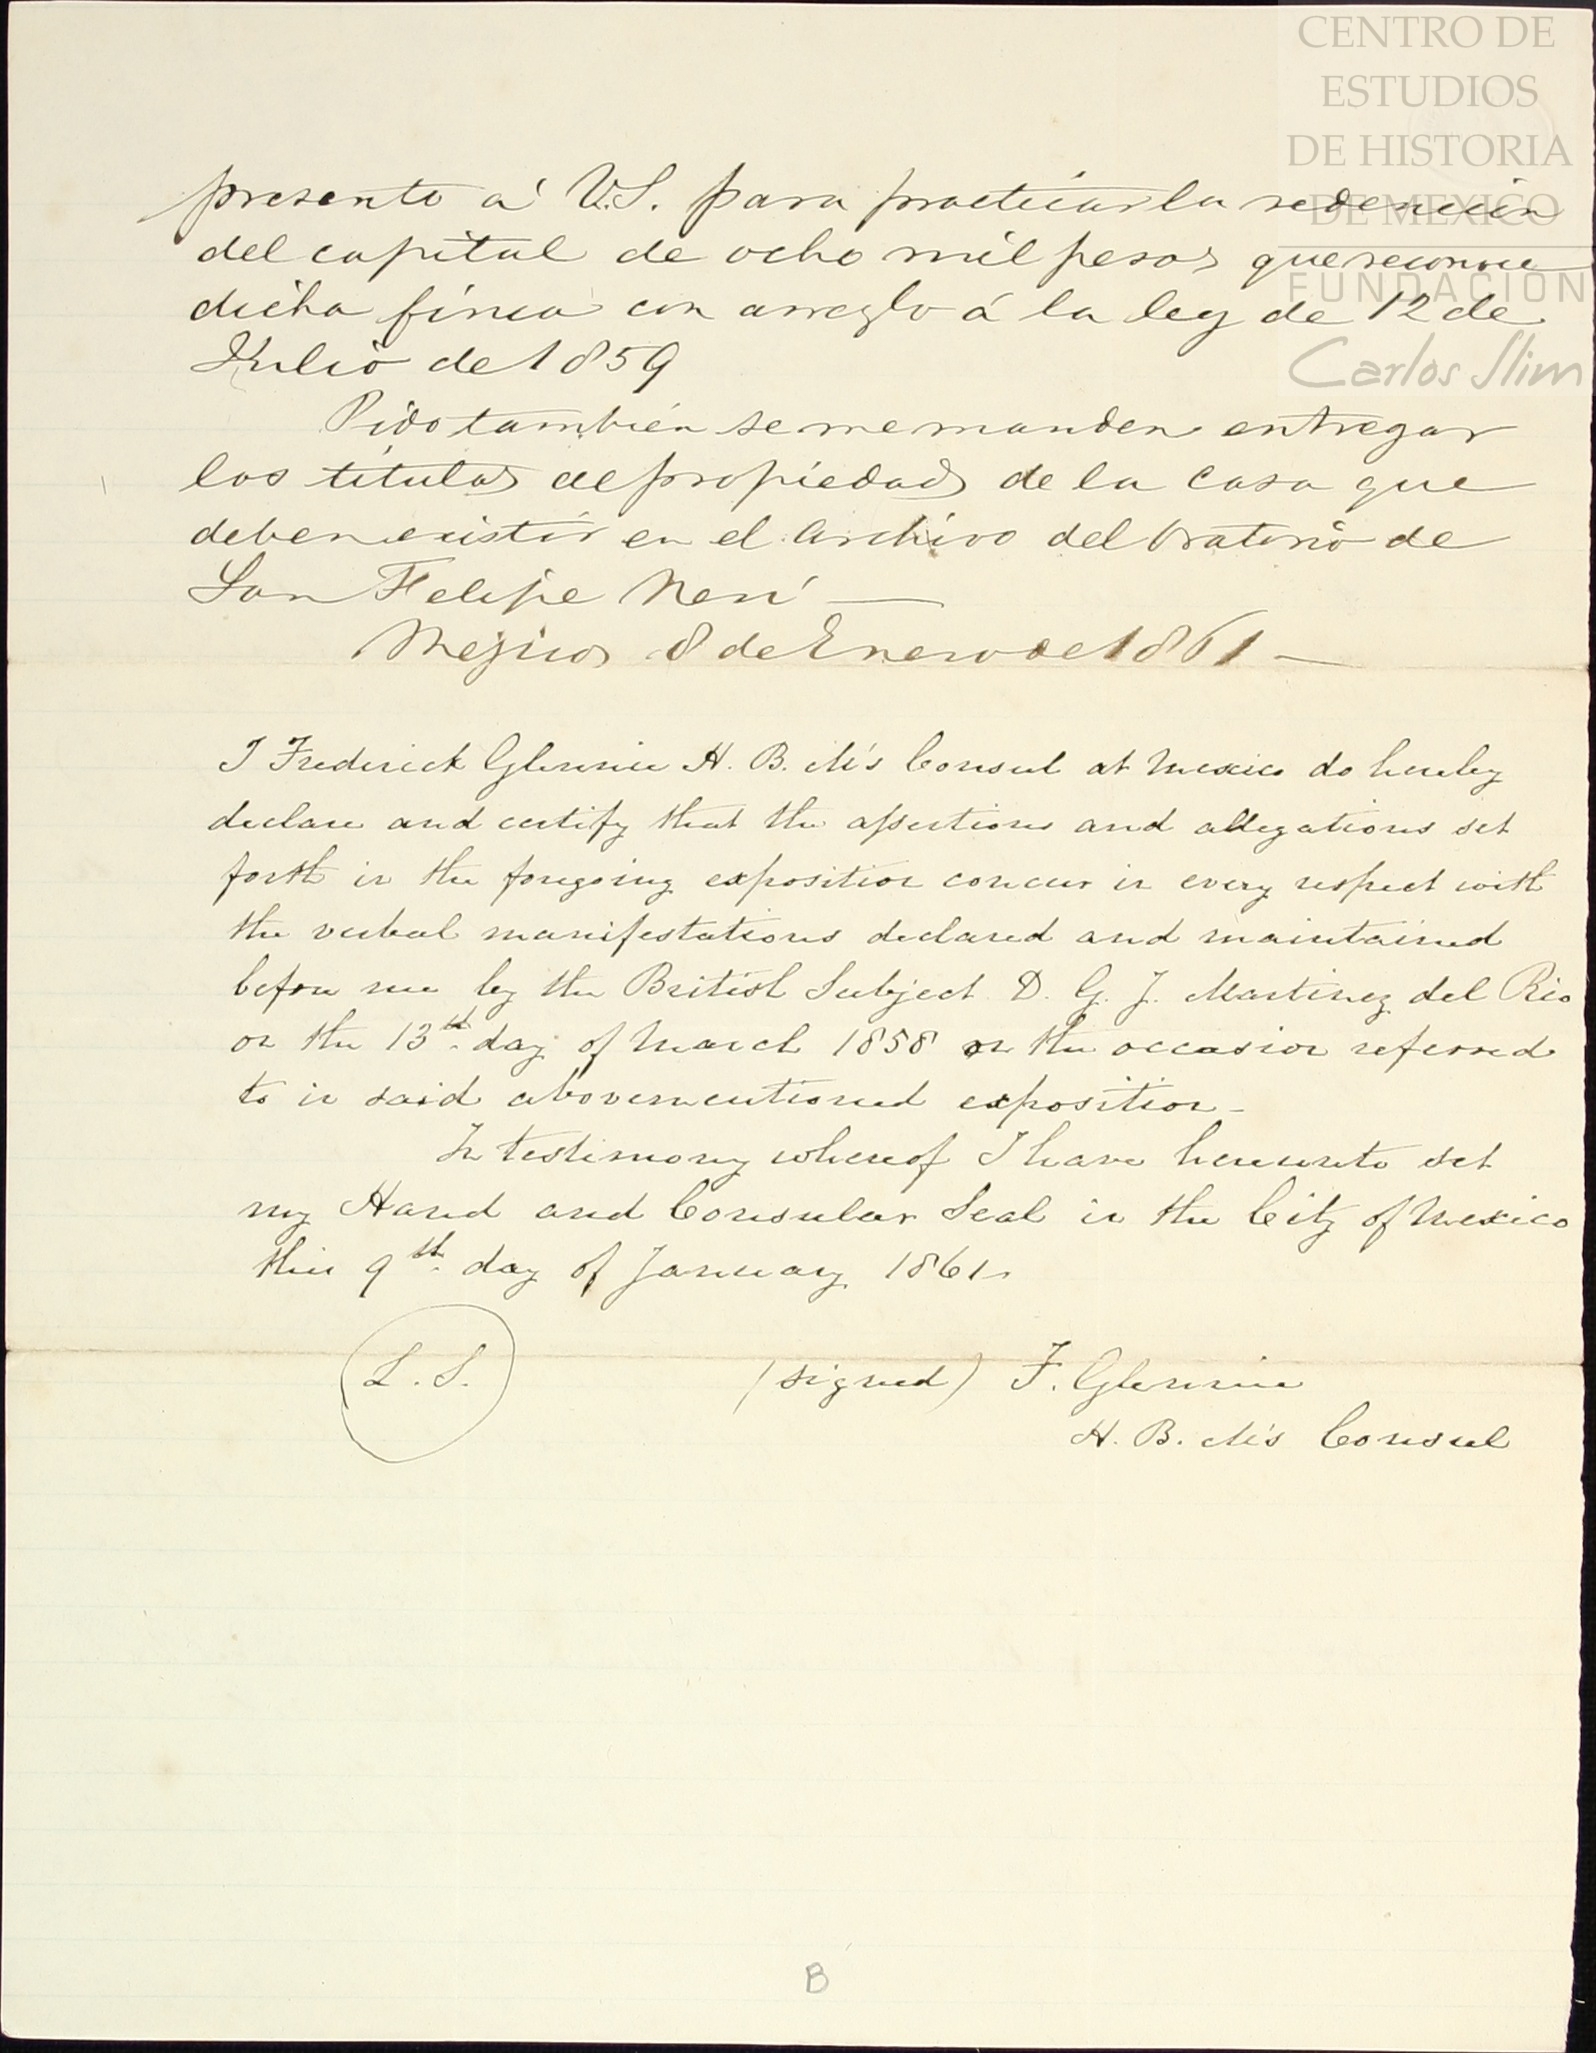 CENTRO DE
ESTUDIOS
DE HISTORIA
DE MEXICO
FUNDACIÓN
Carlos Slim
presento á V.S. para practicar la redencion
del capital de ocho mil pesos que reconoce
dicha finca con arreglo á la ley de 12 de
Julio de 1859
Pido tambien se me manden entregar
los titulos de propiedad de la casa que
deben existir en el archivo del Oratorio de
San Felipe Neri —
Mejico 8 de Enero de 1861 —
I Frederick Glennie H. B. M's Consul at Mexico do hereby
declare and certify that the assertions and allegations set
forth in the foregoing exposition concur in every respect with
the verbal manifestations declared and maintained
before me by the British Subject D. G. J. Martinez del Rio
on the 13th day of March 1858 on the occasion referred
to in said abovementioned exposition -
In testimony whereof I have hereunto set
my Hand and Consular Seal in the City of Mexico
this 9th day of January 1861 -
L. S. (signed) F. Glennie
H. B. M's Consul
B